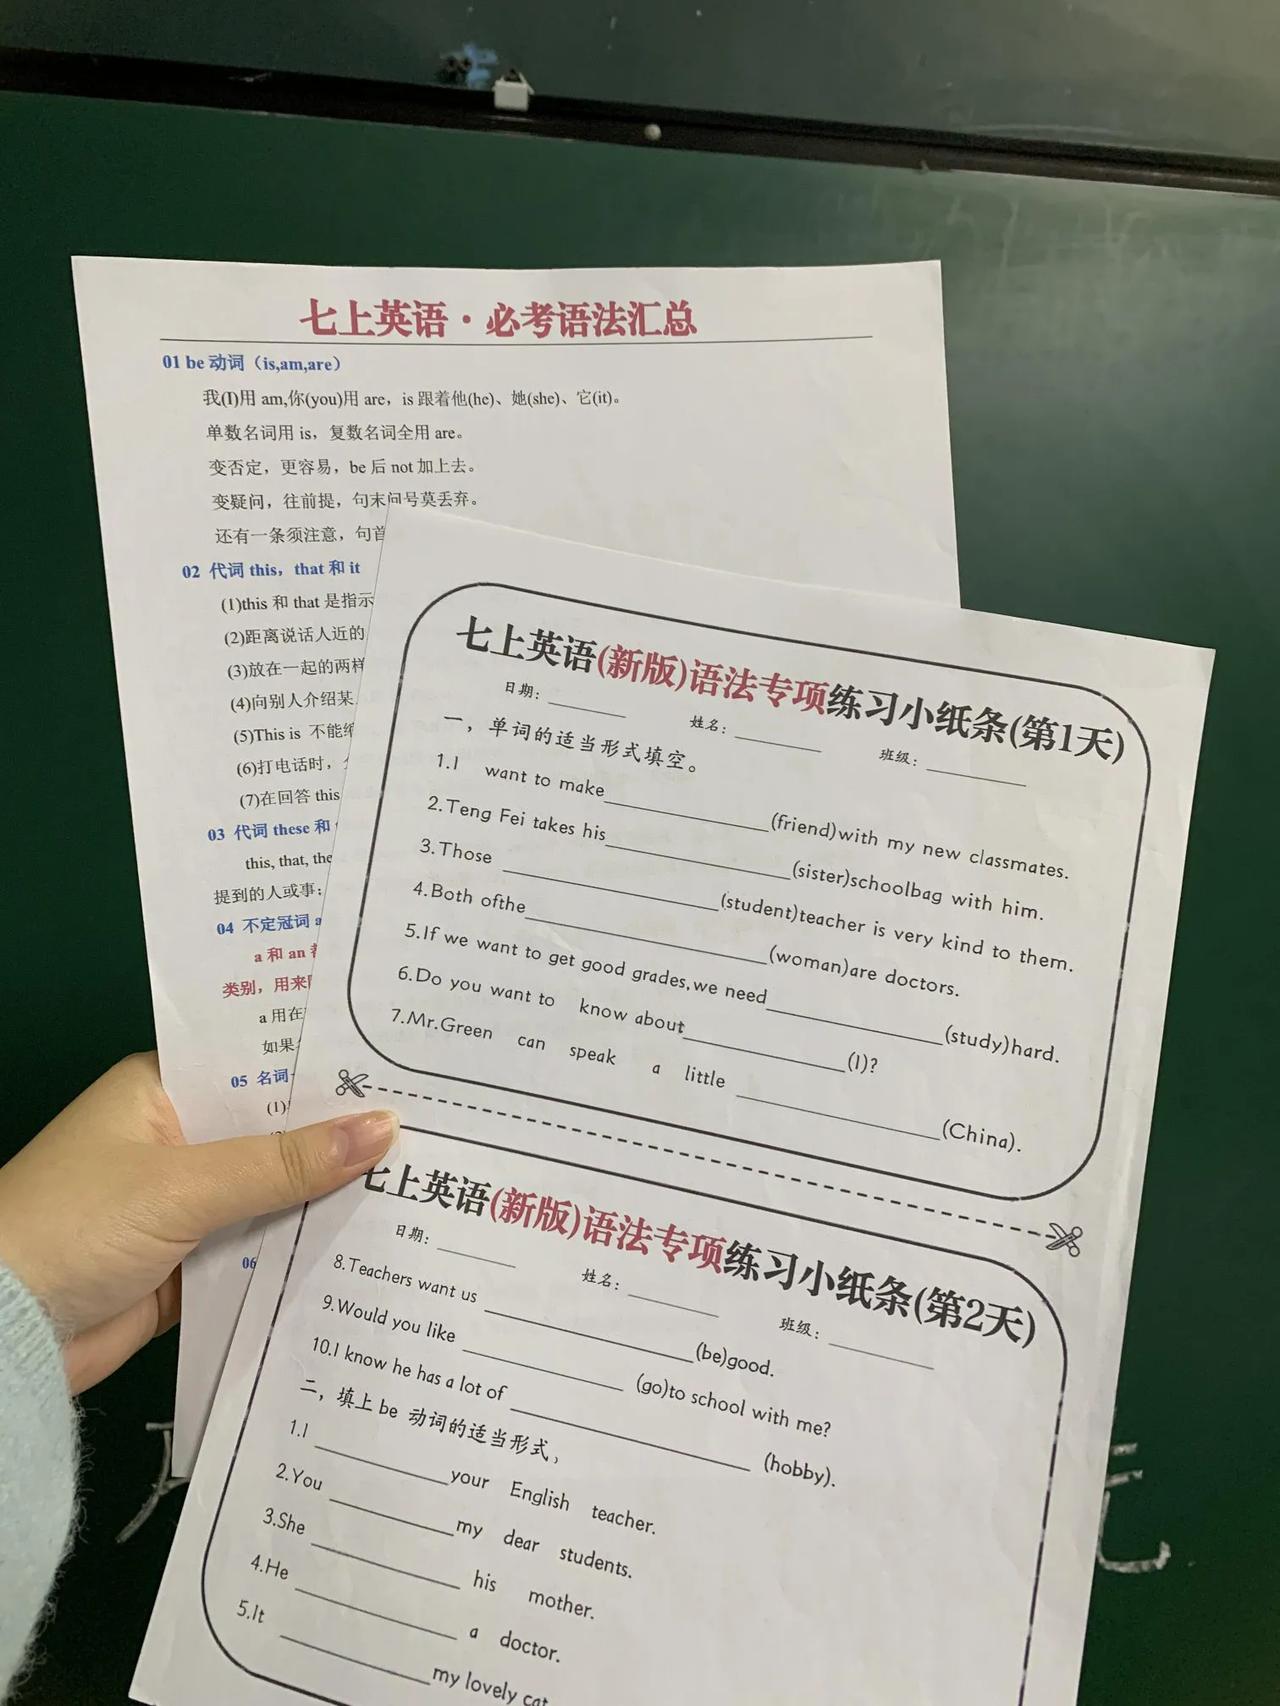 七上英语·必考语法汇总
01 be 动词（is,am,are）
我(I)用 am,你(you)用 are，is 跟着他(he)、她(she)、它(it)。
单数名词用 is，复数名词全用 are。
变否定，更容易，be 后 not 加上去。
变疑问，往前提，句末问号莫丢弃。
还有一条须注意，句首
02 代词 this，that 和 it
(1)this 和 that 是指示
(2)距离说话人近的
(3)放在一起的两样
(4)向别人介绍某
(5)This is 不能缩
(6)打电话时，
(7)在回答 this
03 代词 these 和
this, that, the
提到的人或事；
04 不定冠词 a
a 和 an
类别，用来
a 用在
如果
05 名词
(1)
06
七上英语(新版)语法专项练习小纸条(第1天)
日期： 姓名： 班级：
一，单词的适当形式填空。
1.I want to make (friend)with my new classmates.
2.Teng Fei takes his (sister)schoolbag with him.
3.Those (student)teacher is very kind to them.
4.Both ofthe (woman)are doctors.
5.If we want to get good grades,we need (study)hard.
6.Do you want to know about (I)?
7.Mr.Green can speak a little (China).
七上英语(新版)语法专项练习小纸条(第2天)
日期： 姓名： 班级：
8.Teachers want us (be)good.
9.Would you like (go)to school with me?
10.I know he has a lot of (hobby).
二，填上 be 动词的适当形式，
1.I your English teacher.
2.You my dear students.
3.She his mother.
4.He a doctor.
5.It my lovely cat